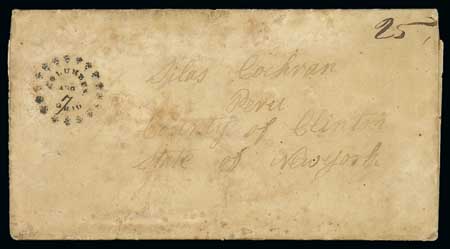 25
COLUMBUS
AUG
7
OHIO
Silas Cochran
Peru
County of Clinton
State of Newyork